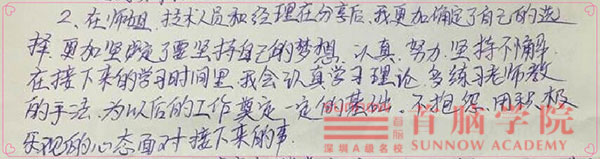 2、在师姐、技术人员和经理在分享后，我更加确定了自己的选
择，更加坚定了要坚持自己的梦想，认真、努力、坚持不懈。
在接下来的学习时间里，我会认真学习理论，多练习老师教
的手法，为以后的工作奠定一定的基础。不抱怨，用积极
乐观的心态面对接下来的事
首脑
深圳A级名校
首脑学院
SUNNOW ACADEMY